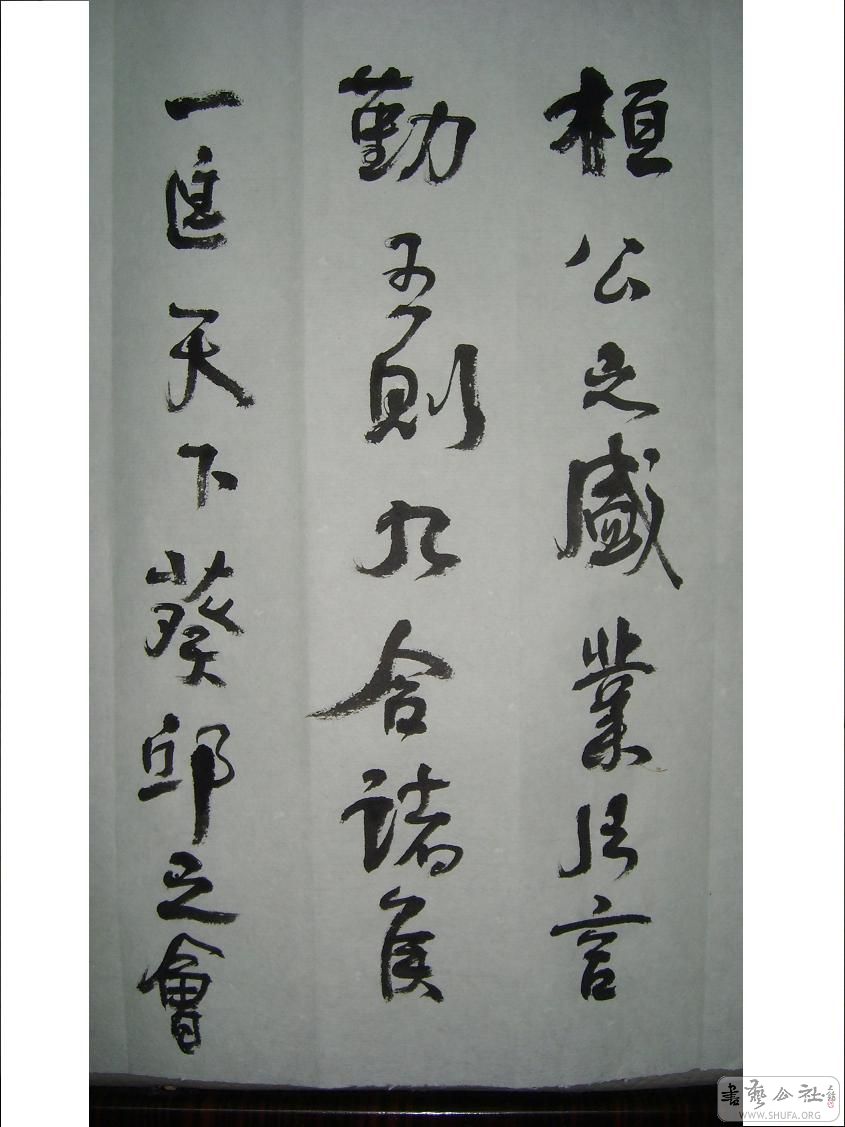 桓公之盛業片言
勤王則九合諸侯
一匡天下葵邱之會
書藝公社
WWW.SHUFA.ORG